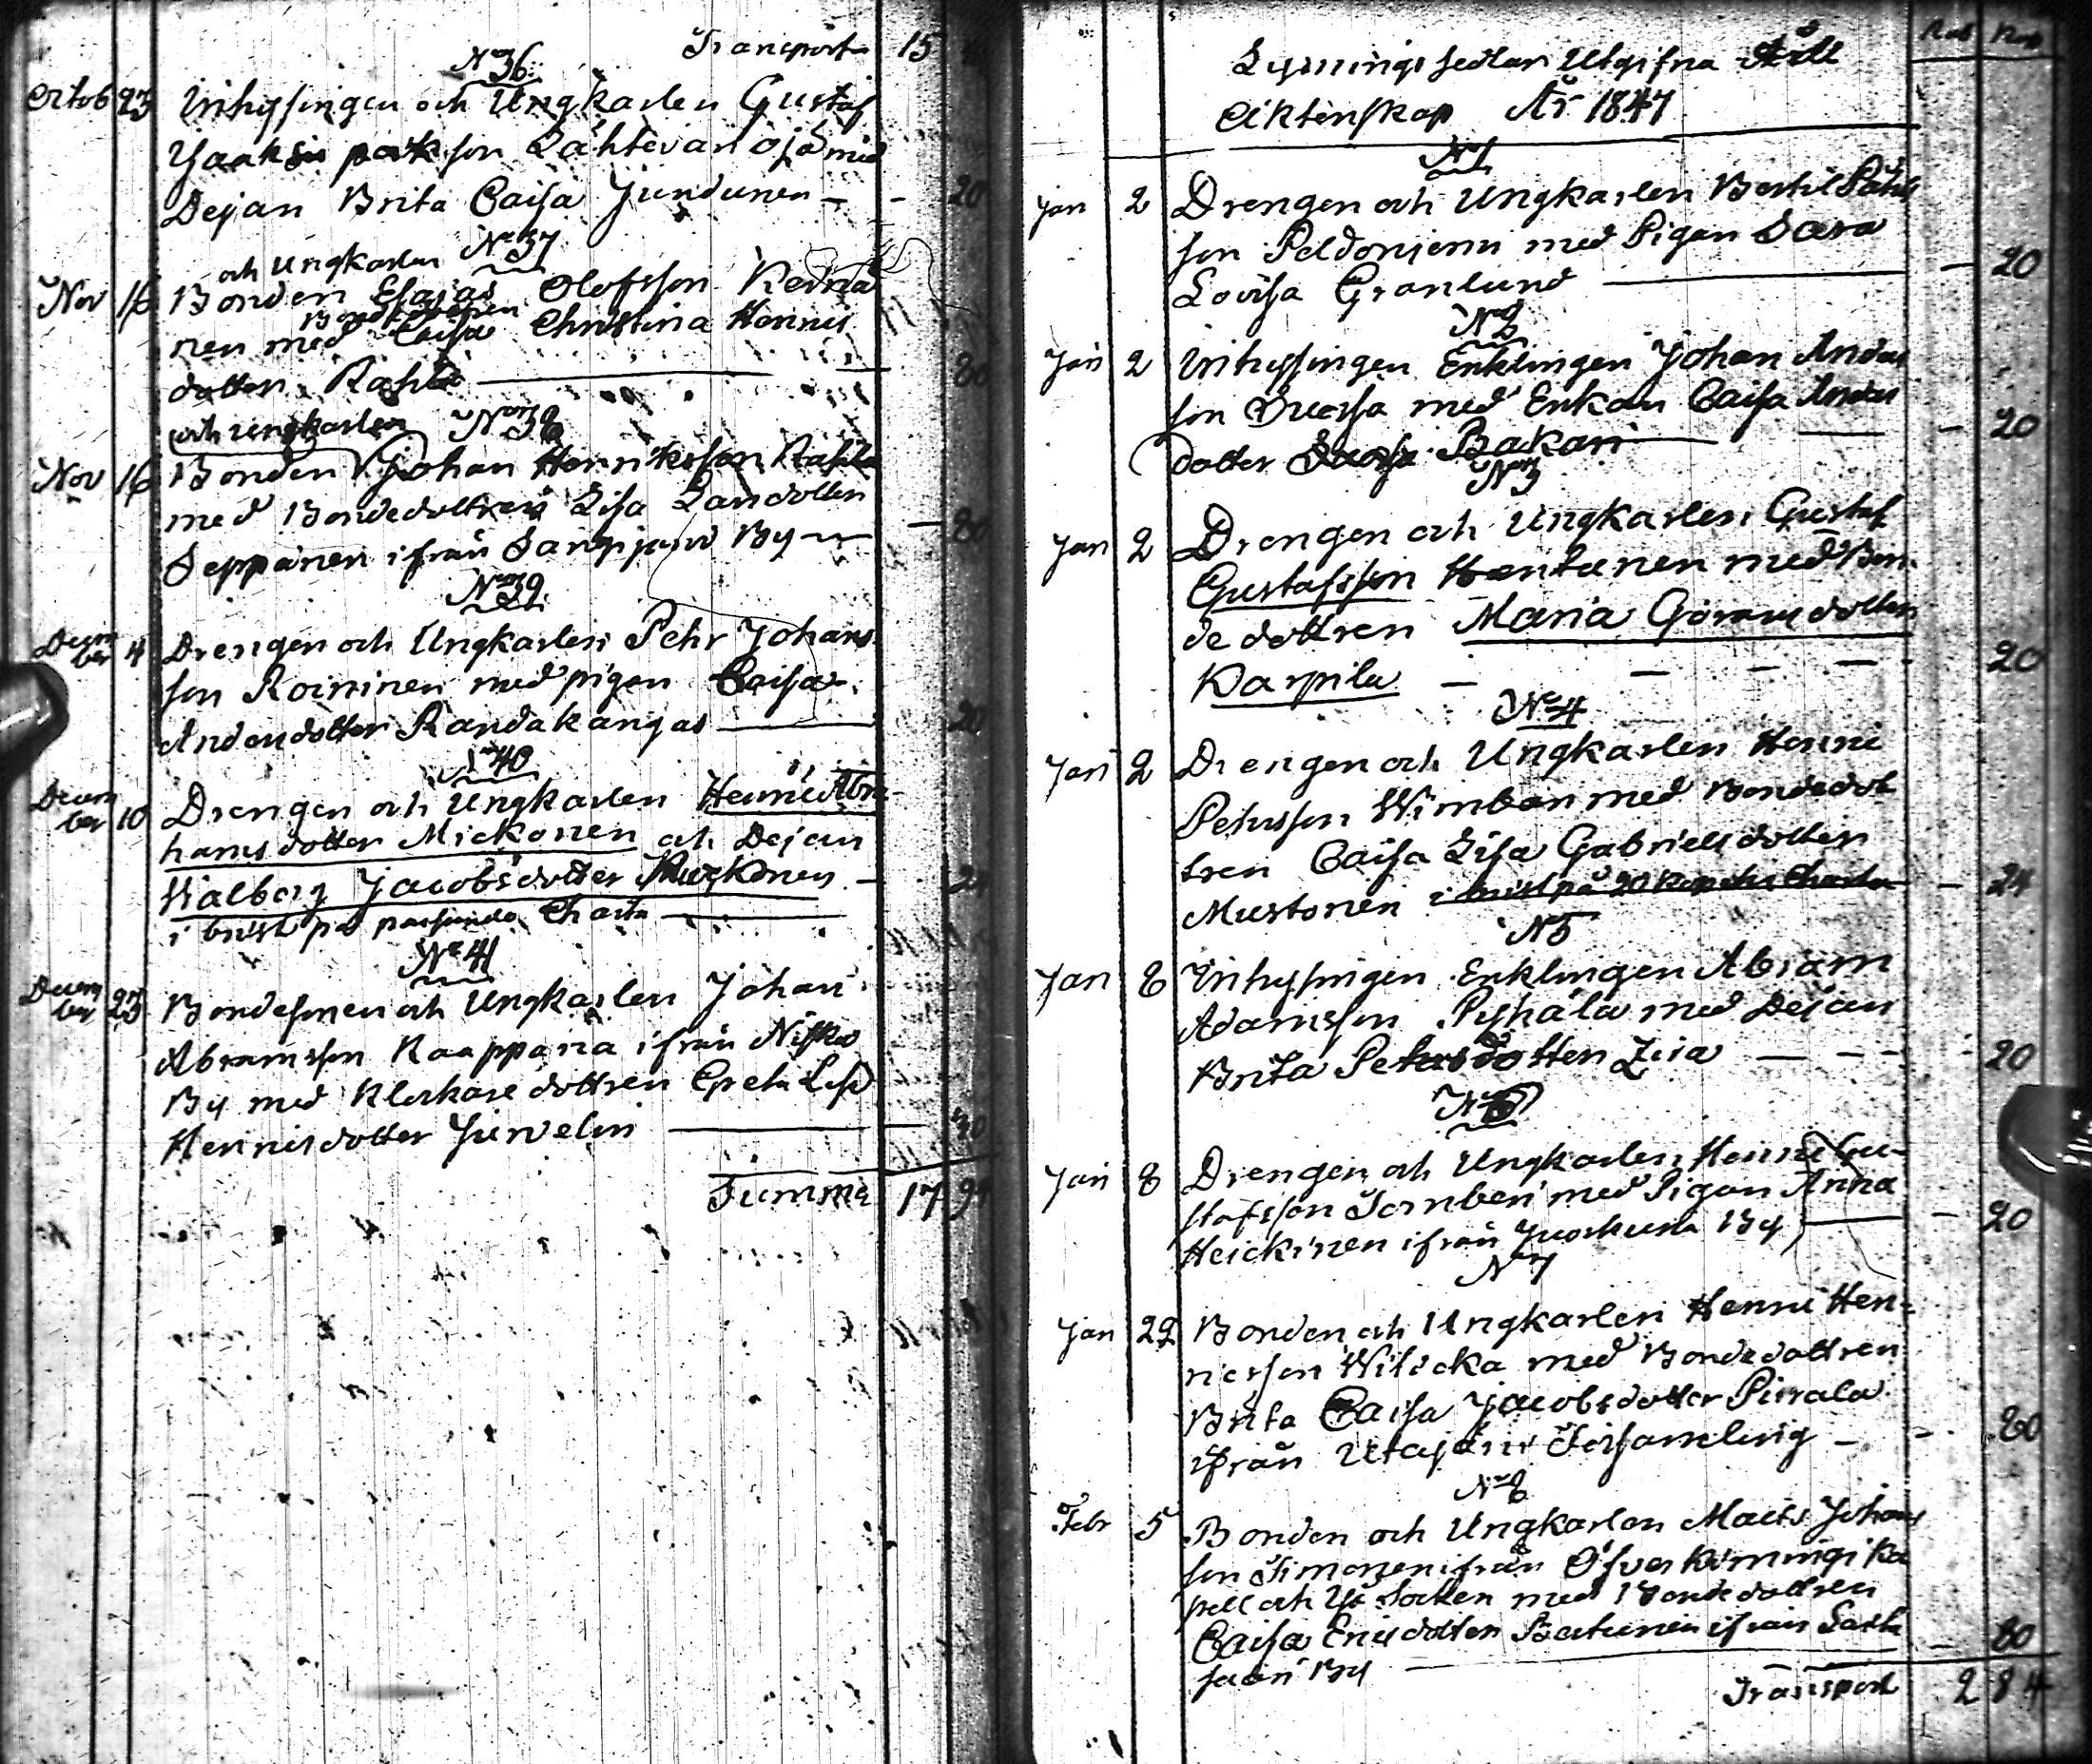 Transport 15
No 36
Octob 23 Inhysingen och Ungkarlen Gustaf
son Lähtevänoja med
Dejan Brita Caisa Jundunen - - 20
och Ungkarlen No 37
Nov 16 Bonden Esaias Olofsson Keina
Bondedottren
nen med Caisa Christina Henries
dotter Rahla 80
och ungkarlen No 38
Nov 16 Bonden Johan Henriksson Rahla
med Bondedottren Lisa Larsdotter
Seppänen ifrån Sangijärvi By - 80
No 39
Decem
ber 4 Drengen och Ungkarlen Pehr Johans
son Roininen med pigan Caisa
Andersdotter Randakangas 20
No 40
Decem
ber 10 Drengen och Ungkarlen Henric Abra
hamsdotter Mickonen och Dejan
Walborg Jacobsdotter -
i brist på passande Charta
No 41
Decem
ber 23 Bondesonen och Ungkarlen Johan
Abramsson Kaappana ifrån Niska
By med Klockare dottren Greta Lisa
Henricsdotter Juvelin 40
Summa 17 94
Rub Kop
Lysnings sedlar Utgifna Till
Ecktenskap År 1847
No 1
Jan 2 Drengen och Ungkarlen Bertil Påhls
son Peldoniemi med Pigan Sara
Lovisa Granlund - 20
No 2
Jan 2 Inhysingen Enklingen Johan Anders
son Suorsa med Enkan Caisa Anders
dotter Suorsa Bakari - 20
No 3
Jan 2 Drengen och Ungkarlen Gustaf
Gustafsson Hentunen med Bon
de dottren Maria Göransdotter
Karpila - - - - 20
No 4
Jan 2 Drengen och Ungkarlen Henric
Pehrsson Wimberi med Bondedot
tren Caisa Lisa Gabrielsdotter
Mustonen i brist på 20 Kopeks Charta - 24
No 5
Jan 8 Inhysingen Enklingen Abram
Adamsson Pyhälä med Dejan
Brita Pehrsdotter - - - 20
No 6
Jan 8 Drengen och Ungkarlen Henric Gu
stafsson Tornberi med Pigan Anna
Heickinen ifrån Juorkuna By - 20
No 7
Jan 22 Bonden och Ungkarlen Henric Hen-
ricsson Witicka med Bondedottren
Brita Caisa Jacobsdotter Pirrala
ifrån Utajärvi Församling - - 80
No 8
Febr 5 Bonden och Ungkarlen Matts Johans
son Timonen ifrån Öfver Kiminge Ka
pell och Ijo Socken med Bondedottren
Caisa Ericsdotter ifrån Sarka
By - 80
Transport 2 84